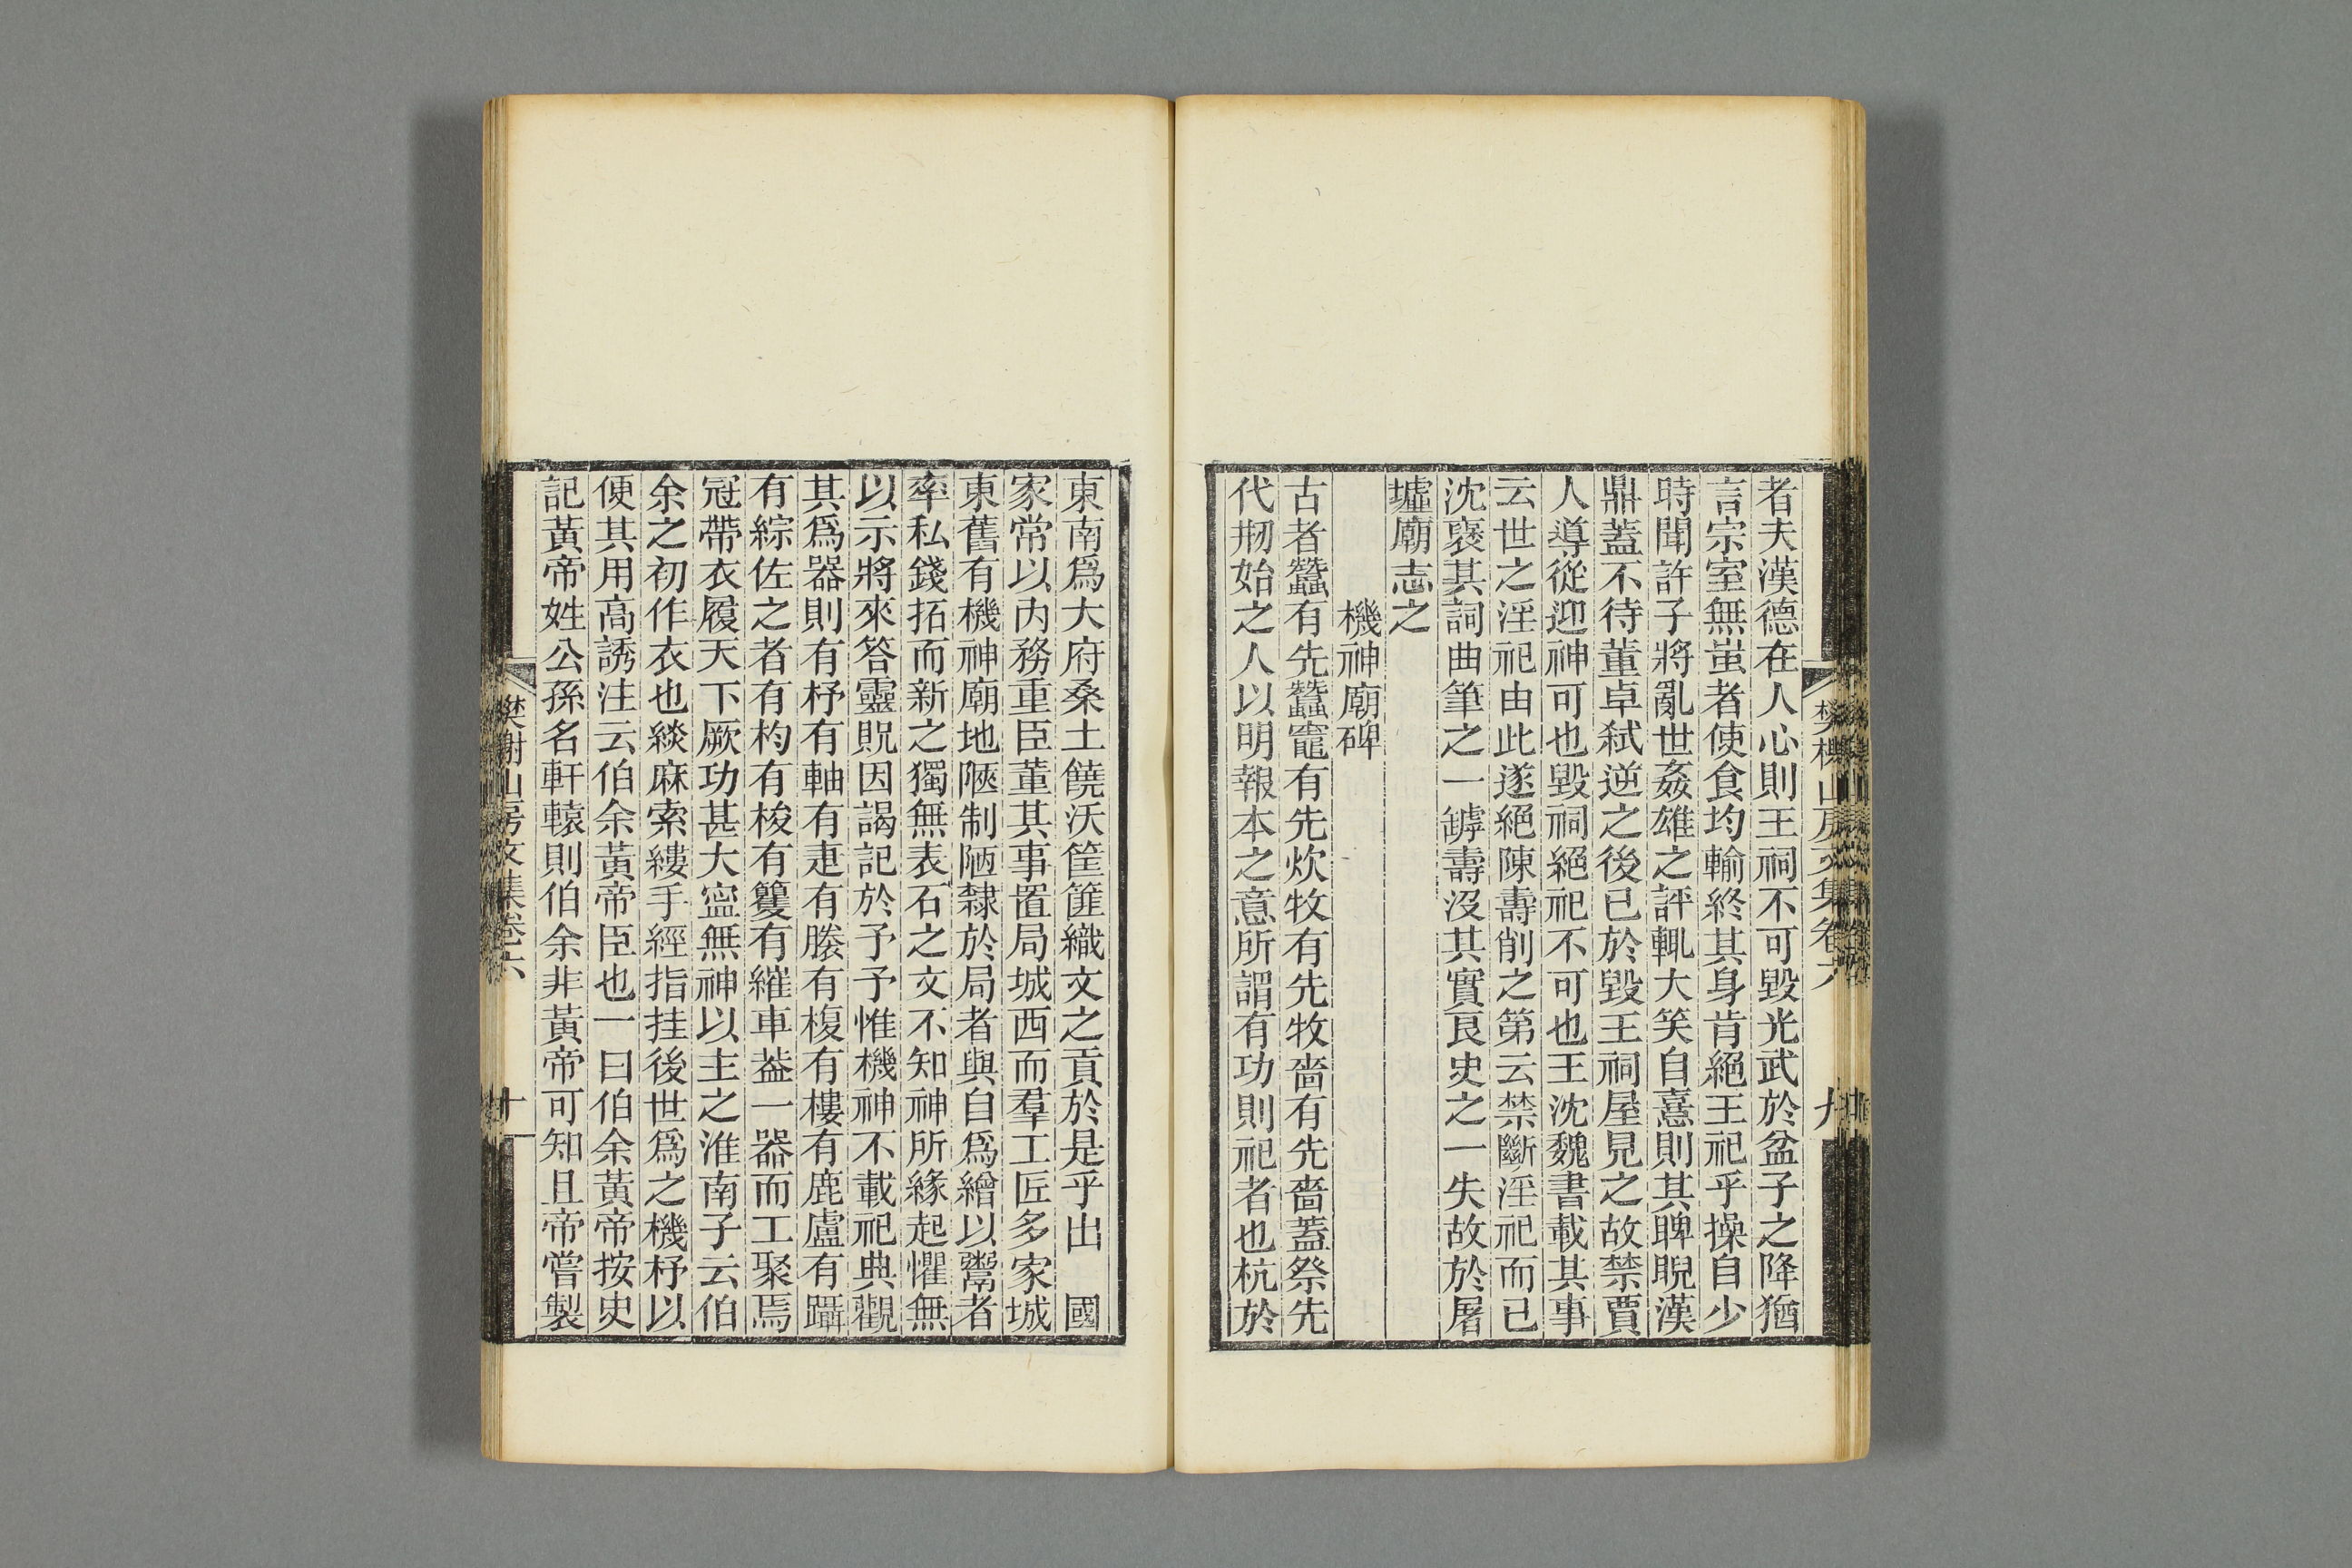 者夫漢德在人心則王祠不可毀光武於盆子之降猶
言宗室無蚩者使食均輸終其身肯絕王祀乎操自少
時聞許子將亂世姦雄之評輒大笑自憙則其睥睨漢
鼎蓋不待董卓弒逆之後已於毀王祠屋見之故禁賈
人導從迎神可也毀祠絕祀不可也王沈魏書載其事
云世之淫祀由此遂絕陳壽削之第云禁斷淫祀而已
沈褒其詞曲筆之一罅壽沒其實良史之一失故於屠
墟廟志之
機神廟碑
古者蠶有先蠶竈有先炊牧有先牧嗇有先嗇蓋祭先
代刱始之人以明報本之意所謂有功則祀者也杭於
樊榭山房文集卷六
九
東南爲大府桑土饒沃筐篚織文之貢於是乎出 國
家常以内務重臣董其事置局城西而羣工匠多家城
東舊有機神廟地陿制陋隸於局者與自爲繒以鬻者
率私錢拓而新之獨無表石之文不知神所緣起懼無
以示將來答靈貺因謁記於予予惟機神不載祀典觀
其爲器則有杼有軸有疌有縢有椱有樓有鹿盧有躡
有綜佐之者有杓有梭有籆有繀車葢一器而工聚焉
冠帶衣履天下厥功甚大寍無神以主之淮南子云伯
余之初作衣也緂麻索縷手經指挂後世爲之機杼以
便其用高誘注云伯余黃帝臣也一曰伯余黃帝按史
記黃帝姓公孫名軒轅則伯余非黃帝可知且帝嘗製
樊榭山房文集卷六
十